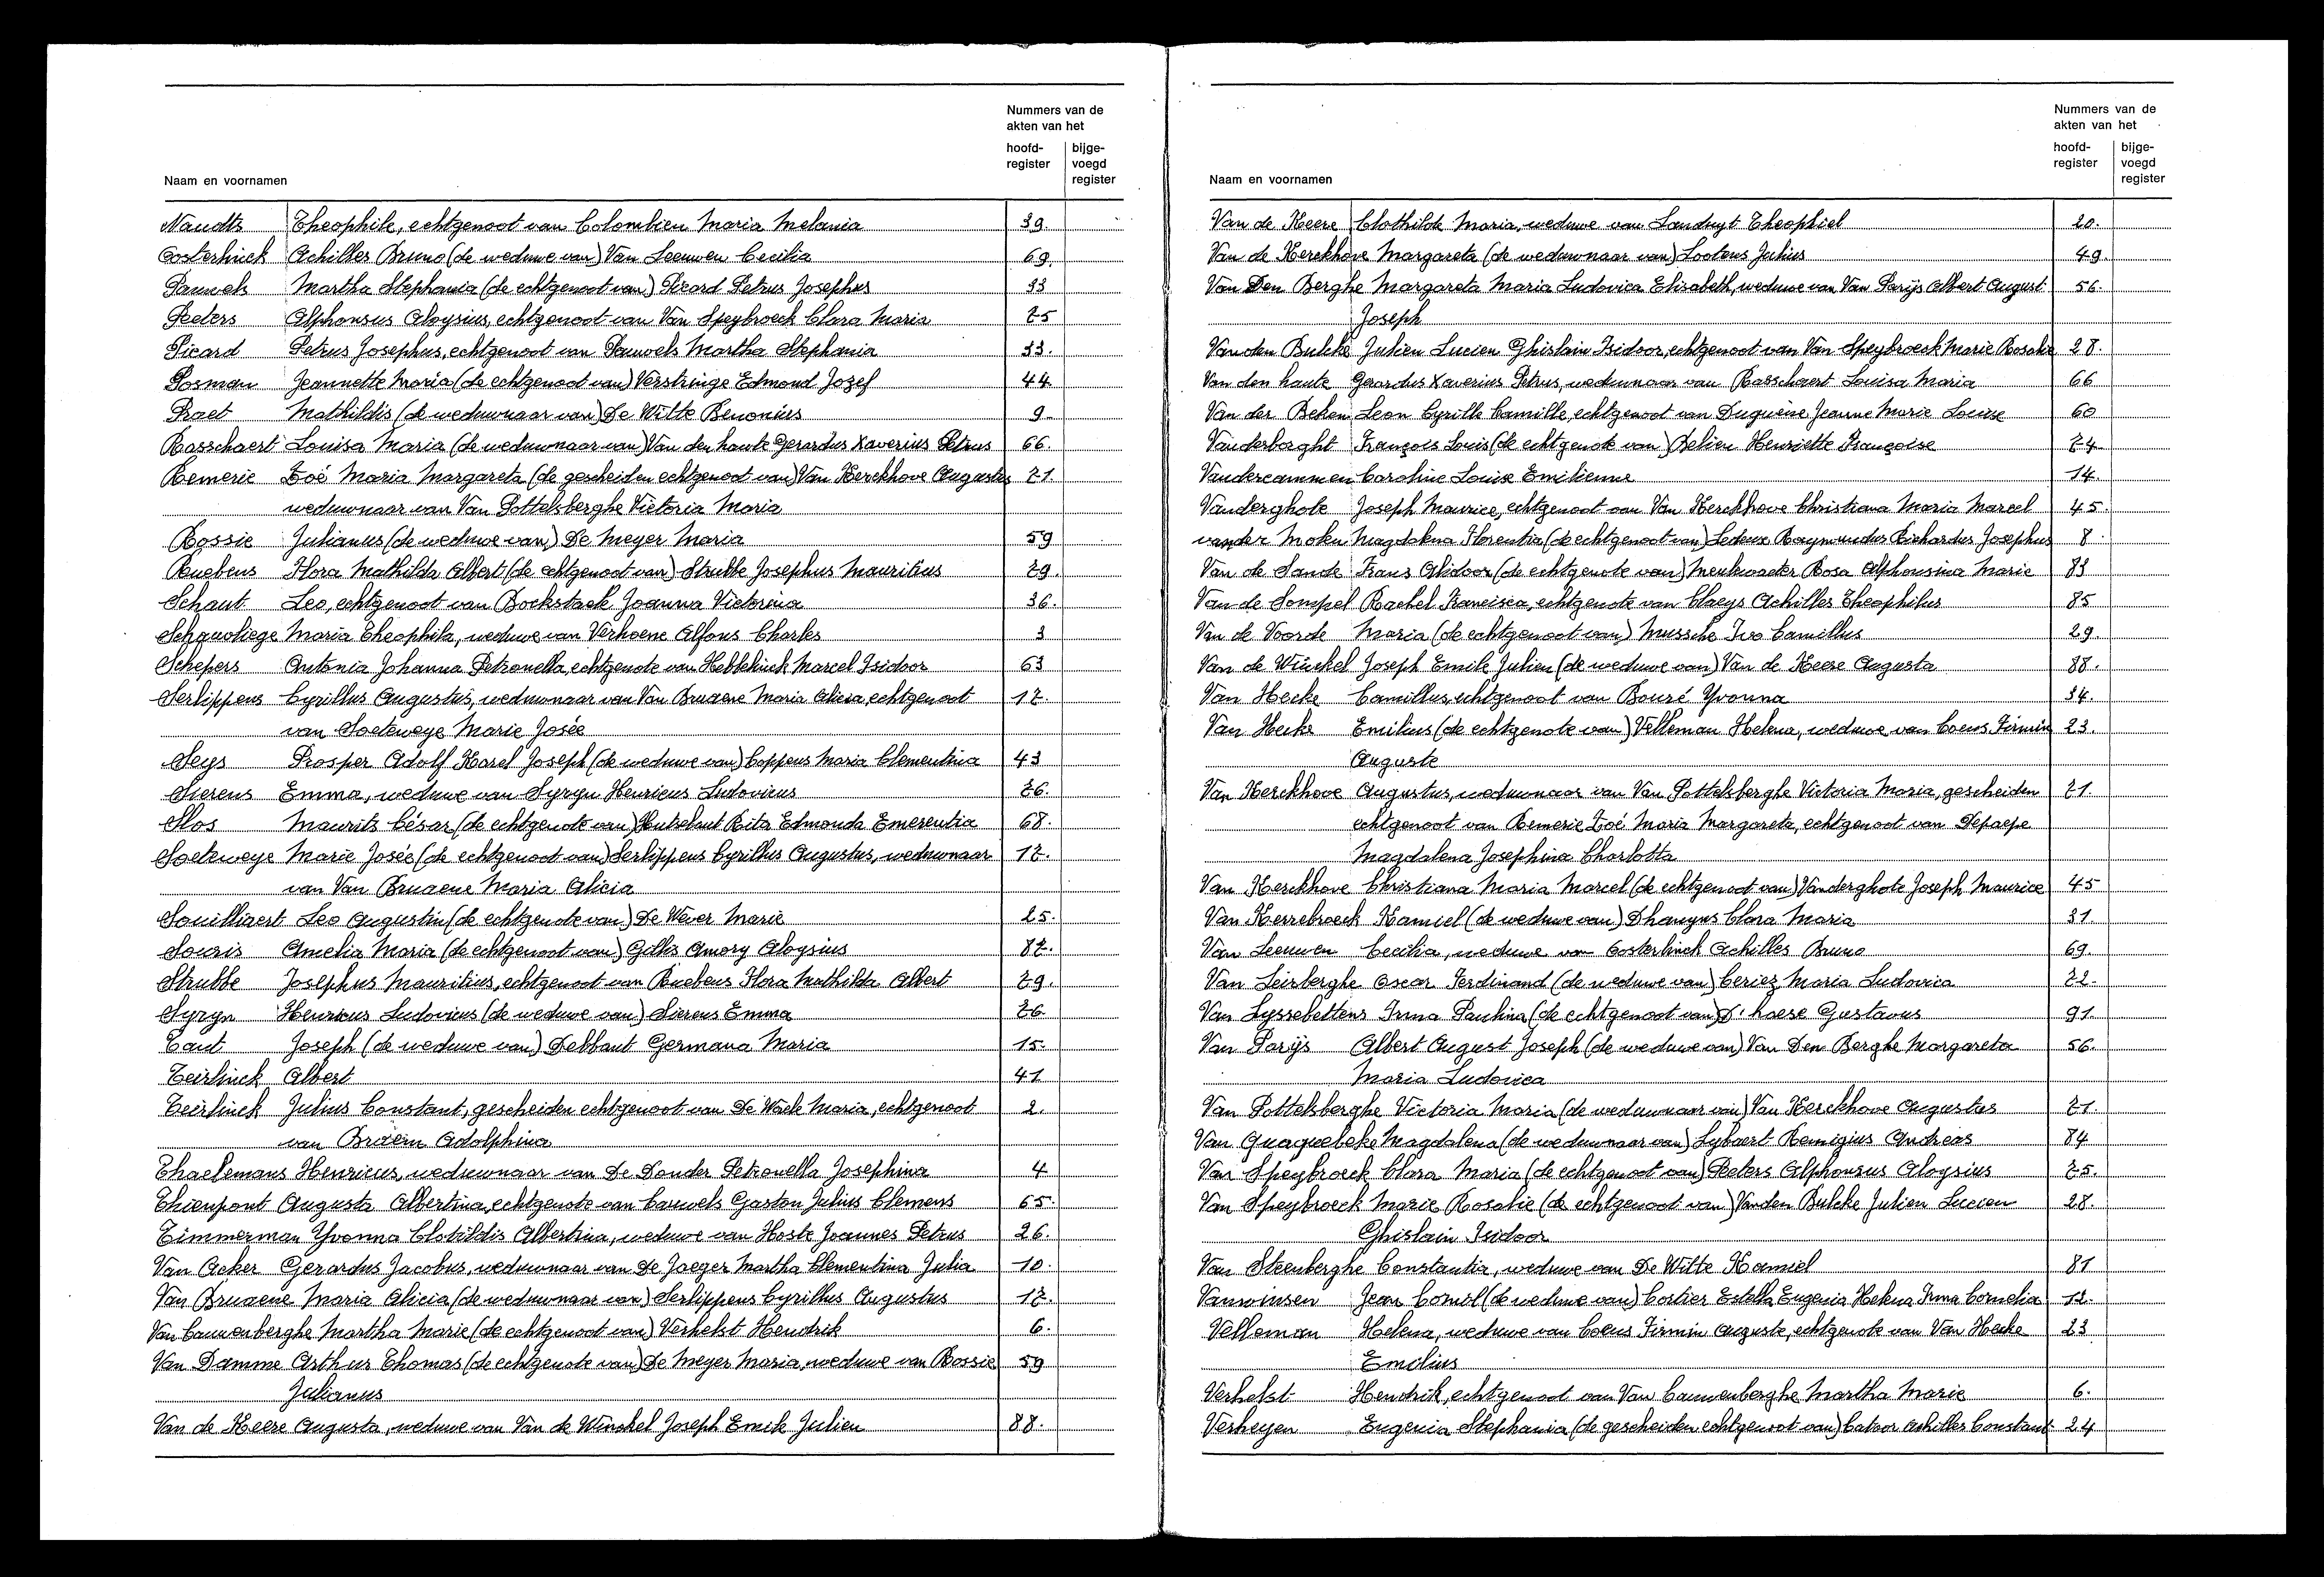 Nummers van de
akten van het
hoofd- bijge-
register voegd
register
Naam en voornamen
Naudts Theophile, echtgenoot van Colombien Maria Melania 39.
Oosterlinck Achilles Bruno (de weduwe van) Van Leeuwen Cecilia 69.
Pauwels Martha Stephania (de echtgenoot van) Picard Petrus Josephus 33
Peeters Alphonsus Aloysius, echtgenoot van Van Speybroeck Clara Maria 75
Picard Petrus Josephus, echtgenoot van Pauwels Martha Stephania 33.
Posman Jeannette Maria (de echtgenoot van) Verstringe Edmond Jozef 44.
Praet Mathildis (de weduwnaar van) De Witte Benonius 9.
Rasschaert Louisa Maria (de weduwnaar van) Van den haute Gerardus Xaverius Petrus 66.
Remerie Zoé Maria Margareta (de gescheiden echtgenoot van) Van Kerckhove Augustus 71.
weduwnaar van Van Pottelsberghe Victoria Maria
Rossie Julianus (de weduwe van) De Meyer Maria 59
Ruebens Flora Mathilda Albert (de echtgenoot van) Strubbe Josephus Mauritius 79.
Schaut Leo, echtgenoot van Bockstaele Joanna Victorina 36.
Schauvliege Maria Theophila, weduwe van Verhoene Alfons Charles 3
Schepers Antonia Johanna Petronella, echtgenote van Hebbelinck Marcel Isidoor 63
Serlippens Cyrillus Augustus, weduwnaar van Van Bruaene Maria Alicia, echtgenoot 17.
van Soeteweye Marie Josée
Seys Prosper Adolf Karel Joseph (de weduwe van) Coppens Maria Clementina 43
Sierens Emma, weduwe van Syryn Henricus Ludovicus 76.
Slos Maurits César (de echtgenote van) Hutsebaut Rita Edmonda Emerentia 68.
Soeteweye Marie Josée (de echtgenoot van) Serlippens Cyrillus Augustus, weduwnaar 17.
van Van Bruaene Maria Alicia
Souilliaert Leo Augustin (de echtgenote van) De Wever Marie 25.
Souris Amelia Maria (de echtgenoot van) Gillis Amory Aloysius 87.
Strubbe Josephus Mauritius, echtgenoot van Ruebens Flora Mathilda Albert 79.
Syryn Henricus Ludovicus (de weduwe van) Sierens Emma 76
Taut Joseph (de weduwe van) Debbaut Germana Maria 15.
Teirlinck Albert 41
Teirlinck Julius Constant, gescheiden echtgenoot van De Waele Maria, echtgenoot 2.
van Braem Adolphina
Thaelemans Henricus, weduwnaar van De Donder Petronella Josephina 4
Thienpont Augusta Albertina, echtgenote van Cauwels Gaston Julius Clemens 65.
Timmerman Yvonna Clotildis Albertina, weduwe van Hoste Joannes Petrus 26.
Van Acker Gerardus Jacobus, weduwnaar van De Jaeger Martha Clementina Julia 10.
Van Bruaene Maria Alicia (de weduwnaar van) Serlippens Cyrillus Augustus 17.
Van Cauwenberghe Martha Marie (de echtgenoot van) Verhelst Hendrik 6.
Van Damme Arthur Thomas (de echtgenote van) De Meyer Maria, weduwe van Rossie 59
Julianus
Van de Keere Augusta, weduwe van Van de Winckel Joseph Emile Julien 88.
Nummers van de
akten van het
hoofd- bijge-
register voegd
register
Naam en voornamen
Van de Keere Clothilde Maria, weduwe van Landuyt Theophiel 20.
Van de Kerckhove Margareta (de weduwnaar van) Lootens Julius 49.
Van Den Berghe Margareta Maria Ludovica Elisabeth, weduwe van Van Parijs Albert August 56.
Joseph
Van den Bulcke Julien Lucien Ghislain Isidoor, echtgenoot van Van Speybroeck Marie Rosalie 28.
Van den haute Gerardus Xaverius Petrus, weduwnaar van Rasschaert Louisa Maria 66
Van der Beken Leon Cyrille Camille, echtgenoot van Duquène Jeanne Marie Louise 60
Vanderborght François Louis (de echtgenote van) Belien Henriette Françoise 74.
Vandercammen Caroline Louise Emilienne 14.
Vanderghote Joseph Maurice, echtgenoot van Van Kerckhove Christiana Maria Marcel 45.
vander Moten Magdalena Florentia (de echtgenoot van) Ledoux Raymundus Richardus Josephus 8
Van de Sande Frans Alidoor (de echtgenote van) Meulewaeter Rosa Alphonsina Marie 83
Van de Sompel Rachel Francisca, echtgenote van Claeys Achilles Theophilus 85
Van de Voorde Maria (de echtgenoot van) Mussche Ivo Camillus 29.
Van de Winckel Joseph Emile Julien (de weduwe van) Van de Keere Augusta 88.
Van Hecke Camillus, echtgenoot van Bouré Yvonna 34.
Van Hecke Emilius (de echtgenote van) Velleman Helena, weduwe van Coens Firmin 23.
Auguste
Van Kerckhove Augustus, weduwnaar van Van Pottelsberghe Victoria Maria, gescheiden 71.
echtgenoot van Remerie Zoé Maria Margareta, echtgenoot van Depaepe
Magdalena Josephina Charlotta
Van Kerckhove Christiana Maria Marcel (de echtgenoot van) Vanderghote Joseph Maurice 45
Van Kerrebroeck Kamiel (de weduwe van) Dhauyns Clara Maria 31.
Van Leeuwen Cecilia, weduwe van Oosterlinck Achilles Bruno 69.
Van Leirberghe Oscar Ferdinand (de weduwe van) Ceriez Maria Ludovica 72.
Van Lyssebettens Irma Paulina (de echtgenoot van) D'haese Gustavus 91.
Van Parijs Albert August Joseph (de weduwe van) Van Den Berghe Margareta 56.
Maria Ludovica
Van Pottelsberghe Victoria Maria (de weduwnaar van) Van Kerckhove Augustus 71.
Van Quaquebeke Magdalena (de weduwnaar van) Lybaert Remigius Andreas 84
Van Speybroeck Clara Maria (de echtgenoot van) Peeters Alphonsus Aloysius 75.
Van Speybroeck Marie Rosalie (de echtgenoot van) Vanden Bulcke Julien Lucien 28.
Ghislain Isidoor
Van Steenberghe Constantia, weduwe van De Witte Kamiel 81
Vanwinsen Jean Comil (de weduwe van) Cortier Estella Eugenia Helena Irma Cornelia 12.
Velleman Helena, weduwe van Coens Firmin Auguste, echtgenote van Van Hecke 23
Emilius
Verhelst Hendrik, echtgenoot van Van Cauwenberghe Martha Marie 6.
Verheyen Eugenia Stephania (de gescheiden echtgenoot van) Catoor Achilles Constant 24